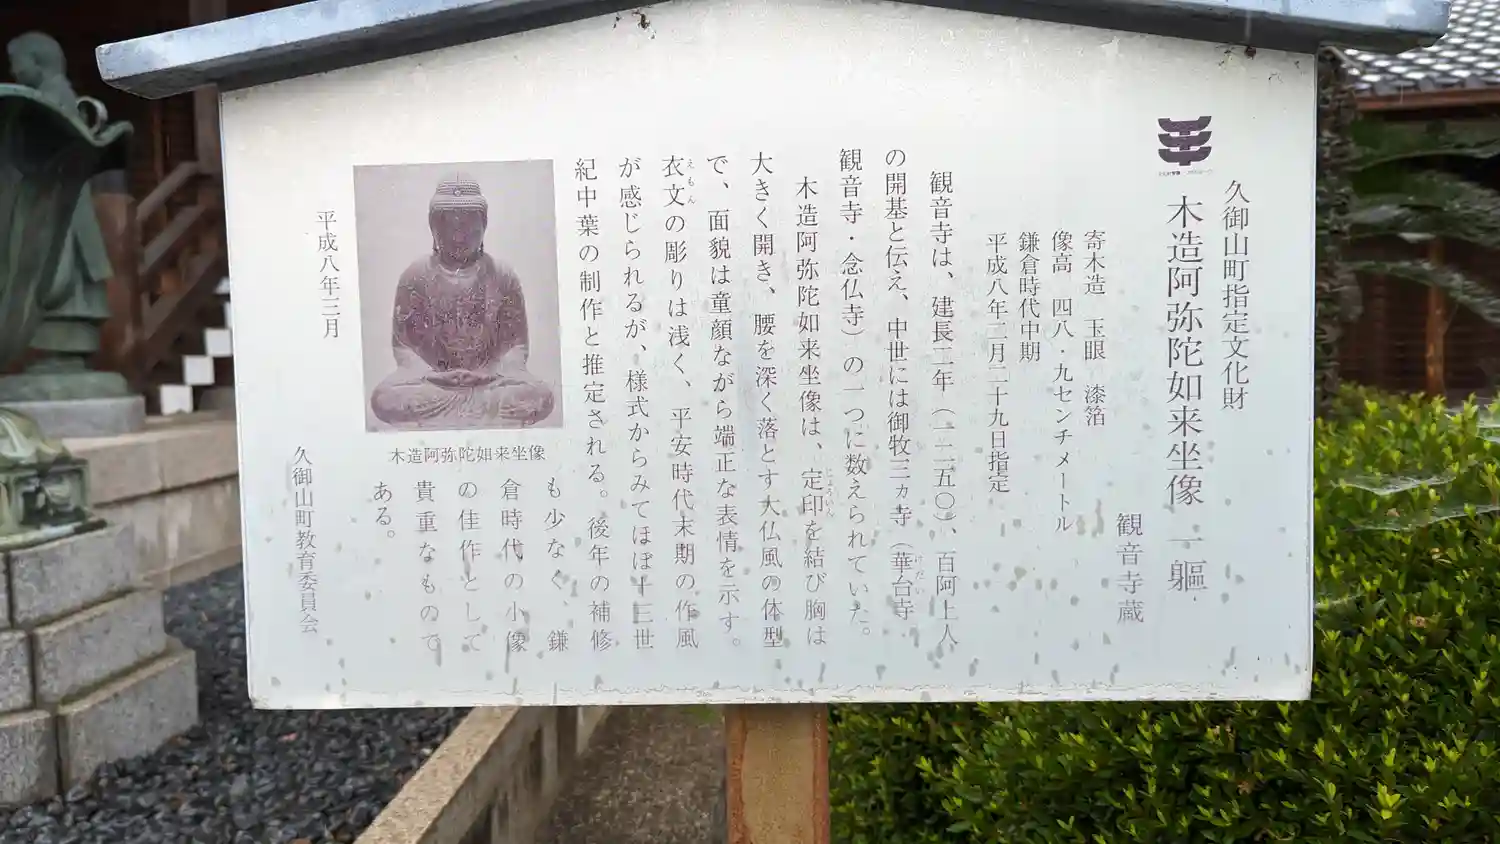 久御山町指定文化財
木造阿弥陀如来坐像 一軀
観音寺蔵
寄木造 玉眼 漆箔
像高 四八・九センチメートル
鎌倉時代中期
平成八年二月二十九日指定
観音寺は、建長二年（一二五〇）、百阿上人
の開基と伝え、中世には御牧三ヵ寺（華台寺・
けだい
観音寺・念仏寺）の一つに数えられていた。
木造阿弥陀如来坐像は、定印を結び胸は
じょういん
大きく開き、腰を深く落とす大仏風の体型
で、面貌は童顔ながら端正な表情を示す。
衣文の彫りは浅く、平安時代末期の作風
えもん
が感じられるが、様式からみてほぼ十三世
紀中葉の制作と推定される。後年の補修
も少なく、鎌
倉時代の小像
の佳作として
貴重なもので
ある。
木造阿弥陀如来坐像
平成八年三月
久御山町教育委員会